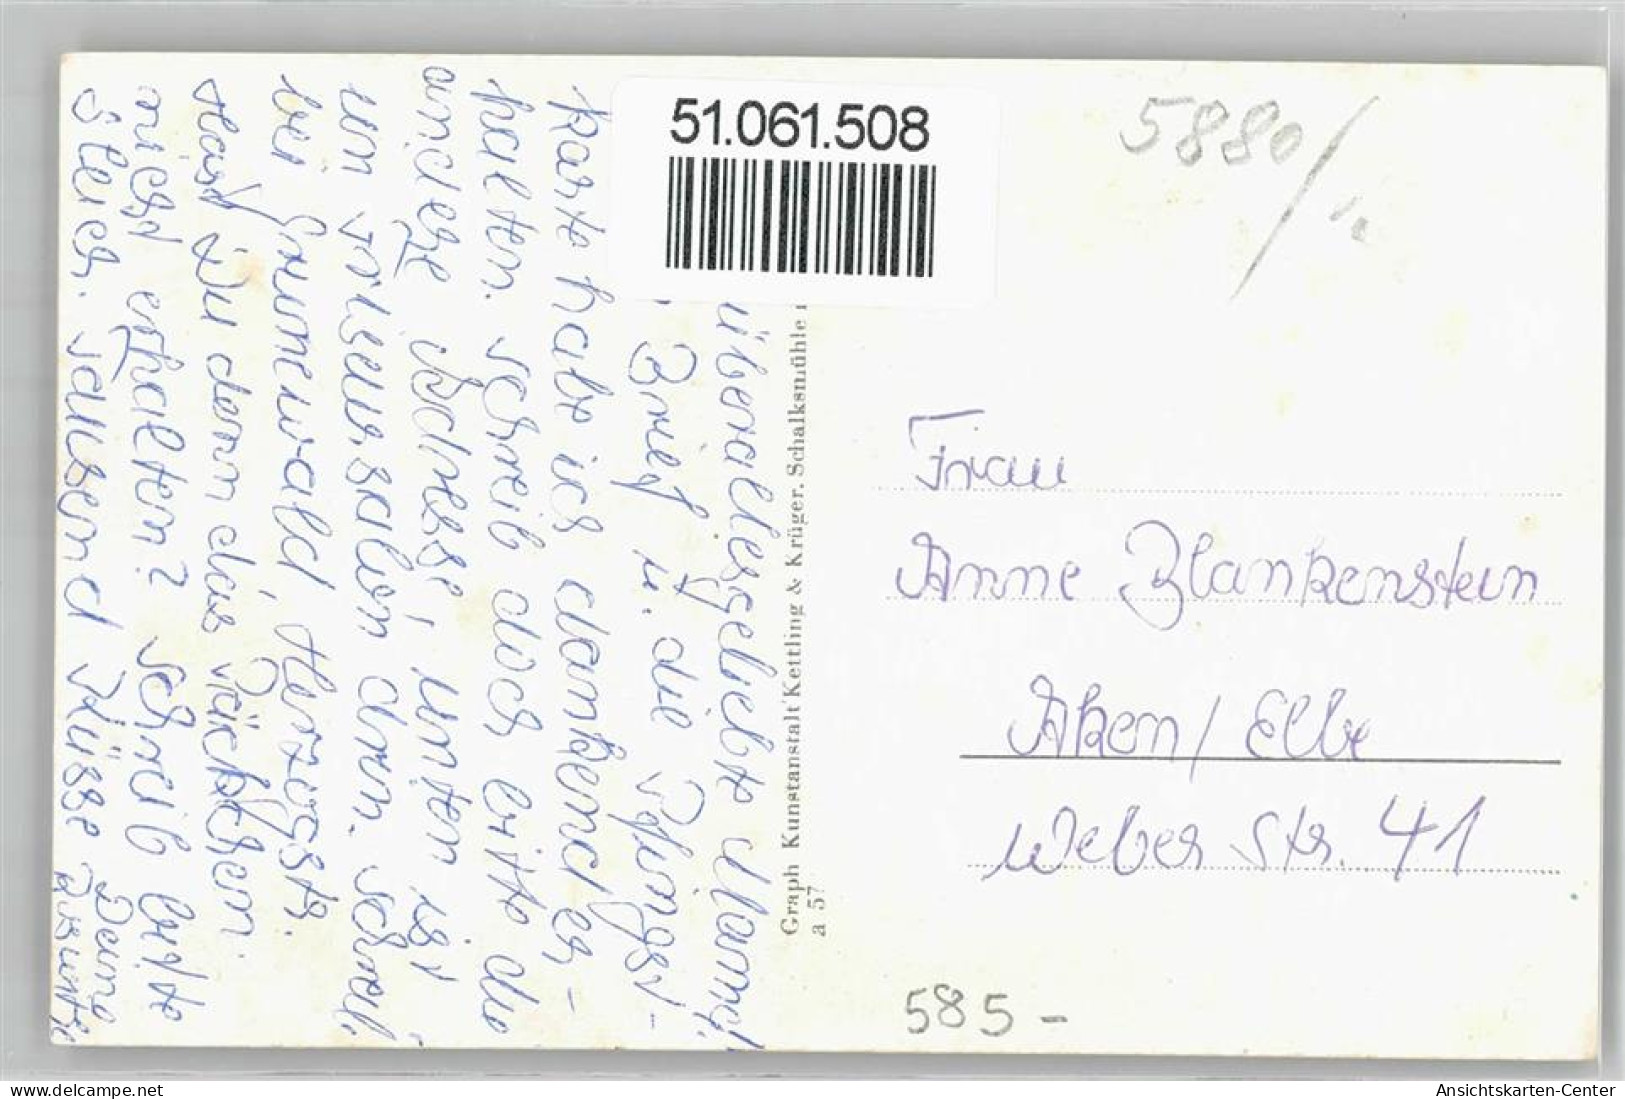 51.061.508
5880/
überallesgeliebte Mama!
Brief u. die Pfingst-
karte habe ich dankend er-
halten. schreib doch bitte die
andere Adresse, unten ist
ein Friseursalon drin. schrb.
bei Grunewald Herzogstr.
Hast Du denn das Päckchen
nicht erhalten? schreib bitte
gleich. Tausend Küsse Deine
Graph Kunstanstalt Kettling & Krüger. Schalksmühle
a 57
Frau
Anne Blankenstein
Aken / Elbe
Weber Str. 41
585 -
delcampe.net
Ansichtskarten-Center